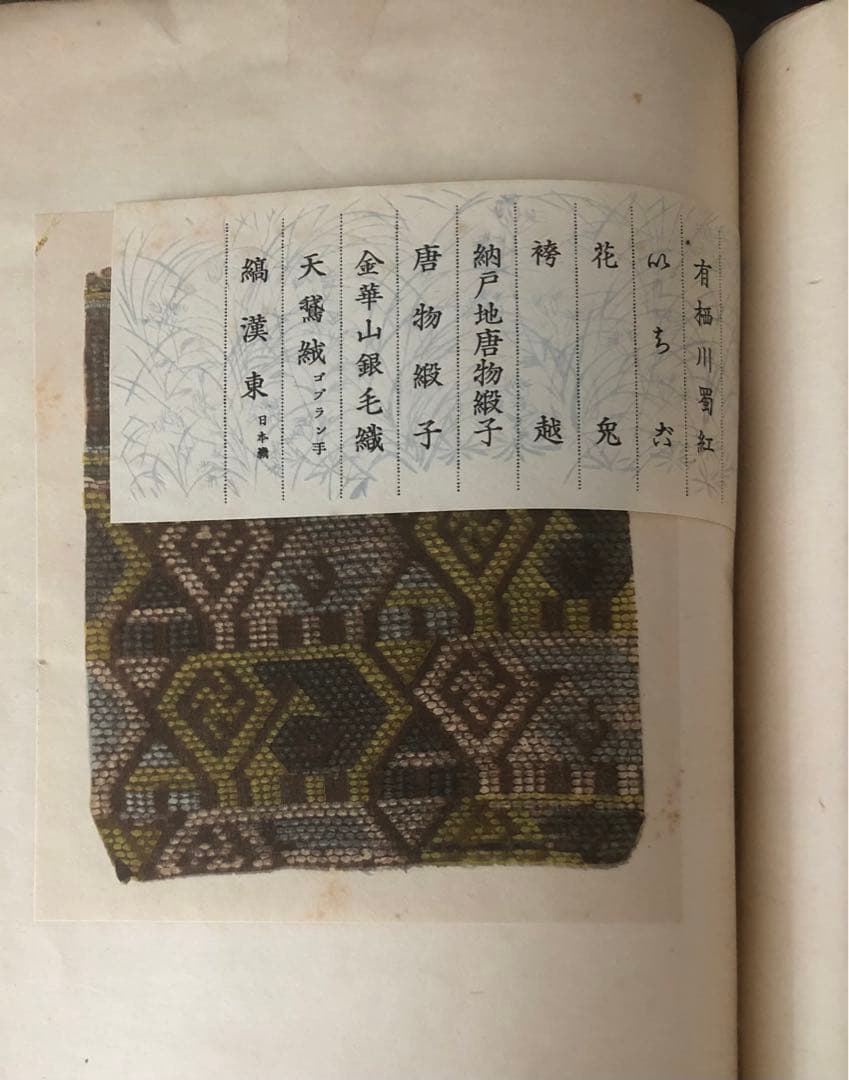 有栖川蜀紅
いちご
花兎
袴越
納戸地唐物緞子
唐物緞子
金華山銀毛織
天鵞絨ゴブラン手
縞漢東日本織